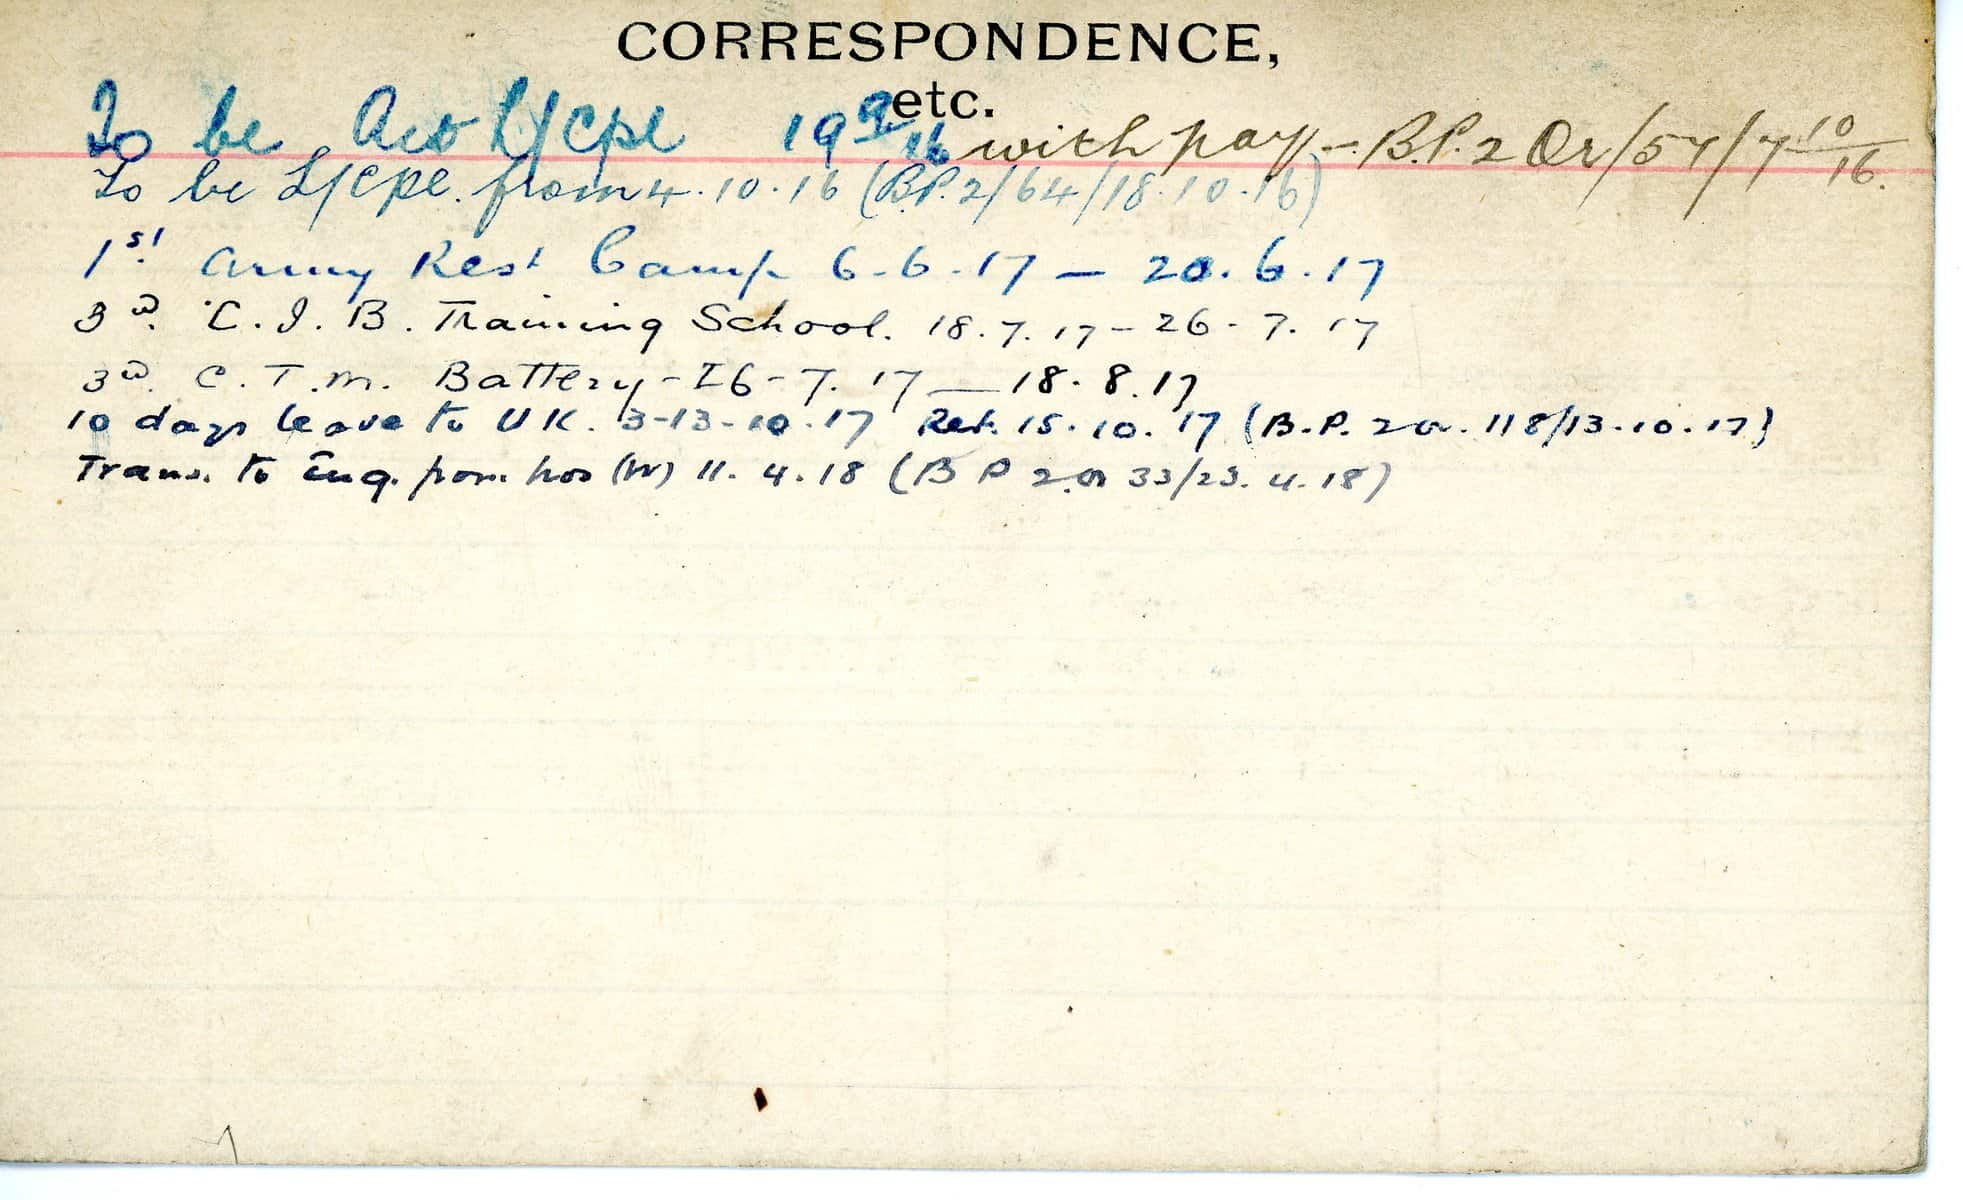 CORRESPONDENCE,
etc.
To be L/Cpl 19 9/16 with pay - B.P. 2 Or/57/7 10/16.
To be L/Cpl. from 4.10.16 (B.P. 2/64/18.10.16)
1st Army Rest Camp 6-6-17 — 20.6.17
3rd C.I.B. Training School. 18.7.17 - 26-7.17
3rd C.T.M. Battery - 26-7.17 — 18.8.17
10 days leave to UK. 3-13-10.17 Ret. 15.10.17 (B.P. 2 Or. 118/13.10.17)
Trans. to Eng. from hos (W) 11.4.18 (B P 2 Or 33/23.4.18)